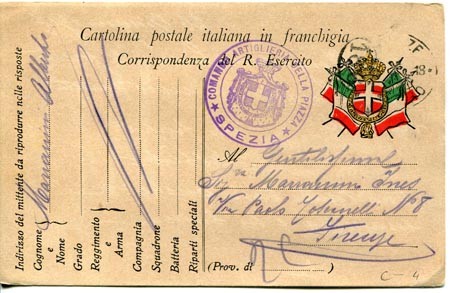 Cartolina postale italiana in franchigia
Corrispondenza del R. Esercito
COMANDO ARTIGLIERIA DELLA PIAZZA
★ SPEZIA ★
Indirizzo del mittente da riprodurre nelle risposte
Cognome e Nome
Grado
Reggimento e Arma
Compagnia
Squadrone
Batteria
Riparti speciali
Al
Sig
Ines
Via Paolo N° 8
Firenze
(Prov. di )
C-4